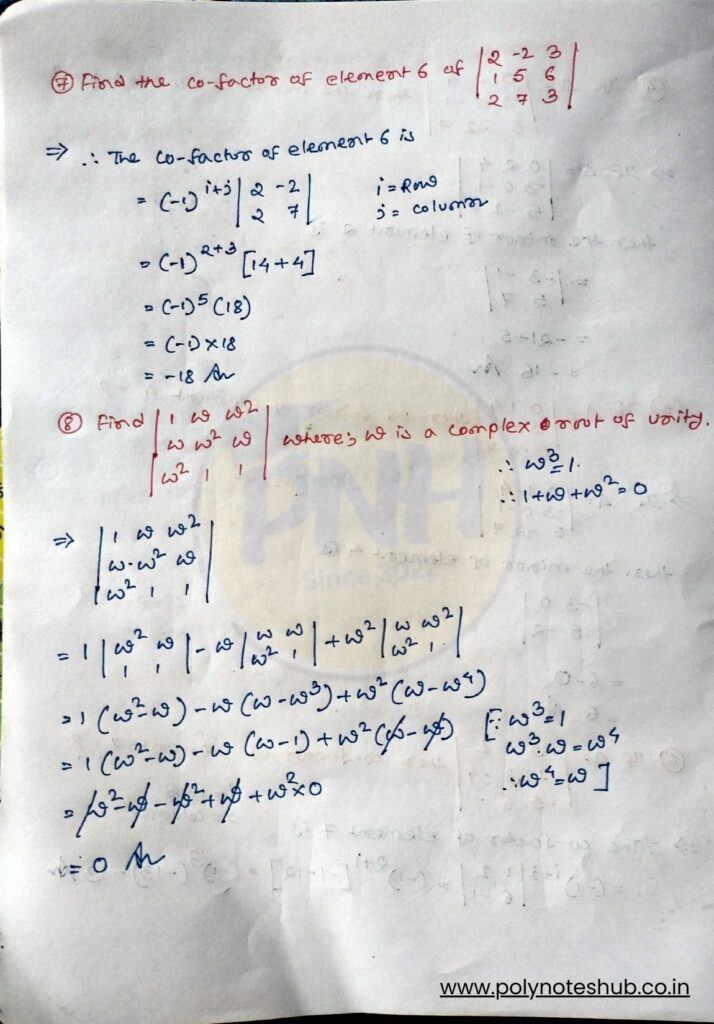 ⑦ Find the co-factor of element 6 of | 2 -2 3 |
| 1 5 6 |
| 2 7 3 |
⇒ ∴ The co-factor of element 6 is
= (-1)^{i+j} | 2 -2 | i = Row
| 2 7 | j = column
= (-1)^{2+3} [14+4]
= (-1)^5 (18)
= (-1) × 18
= -18 Ans
⑧ Find | 1 ω ω² |
| ω ω² ω | where; ω is a complex root of unity.
| ω² 1 1 |
∴ ω³ = 1.
∴ 1+ω+ω² = 0
⇒ | 1 ω ω² |
| ω ω² ω |
| ω² 1 1 |
= 1 | ω² ω | - ω | ω ω | + ω² | ω ω² |
| 1 1 | | ω² 1 | | ω² 1 |
= 1 (ω²-ω) - ω (ω-ω³) + ω² (ω-ω⁴)
= 1 (ω²-ω) - ω (ω-1) + ω² (ω-ω) [∵ ω³=1
ω³·ω=ω⁴
∴ ω⁴=ω ]
= ω²-ω-ω²+ω+ω²×0
= 0 Ans
PNH
Since 2022
www.polynoteshub.co.in